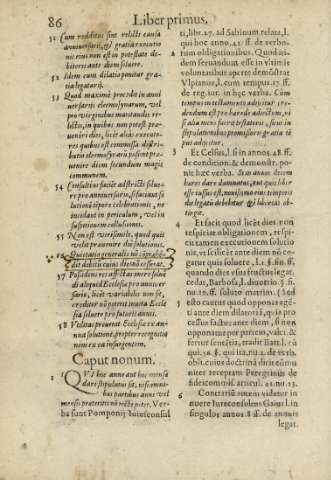 86 Liber primus,
51 Cum redditus sint relicti causa
anniversarij, & gratia executio
nis eius non est in potestate de-
bitoris ante diem soluere.
52 Idem cum dilatio ponitur gra-
tia legatarij.
53 Quid maxime procedit in anni
uersarijs eleemosynarum, vel
pro virginibus maritandis re-
lictis, in quibus non potest præ-
ueniri dies, licet alias executo-
res quibus est commissa distri-
butio eleemosynarum possint præ-
uenire diem secundum magis
communem.
54 Censuarius faciẽ adstricti solue-
re pro anniuersario, fiduciant so
lutionẽ tẽpore celebrationis, ne
incidant in periculum, vel in
suspicionem cellusionis.
55 Non est verisimile, quod quis
velit præuenire die solutionis.
56 Quietatio generalis nõ cõprahẽ-
dit debitũ cuius dies nõ cesserat.
57 Possidens res affectas mero solue-
di aliquid Ecclesia pro anniuer
sario, licet variabilis non sit,
creditur nõ potest inuita Eccle
sia soluere pro futuris annis.
58 Vidimus procurat Ecclesia ex an-
nua solutione, propter recogniti
nem eu ea insurgentem.
Caput nonum.
1 QVI hoc anne aut hoc mensa
dare stipulatus sit, nisi omni-
bus partibus anni vel
mensis præteritis nõ rectè petet. Ver-
ba sunt Pomponij Iuriseconsul
ti, libr. 27. ad Sabinum relata, l.
qui hoc anno. 42. ff. de verbo.
rum obligationibus. Quod ide
dem seruandum esse in vltimis
voluntatibus aperte demõstrat
Vlpianus, l. cum tempus. 17. ff.
de reg. iur. in hęc verba. Cum
tempus in testamento adijcitur cre-
dendum est pro hærede adiectum, ni
si alia mens fuerit testatoris, sicut in
stipulationibus promissoris gratia tẽ
pus adijcitur.
3 Et Celsus, l. si in annos. 48. ff.
de condition. & demonstr. po-
nit hæc verba. Si in annos decem
heres dare damnatus, aut quis liber
esse iussus est, nouissimo eius temporis
die legatũ debebitur & libertas ob-
tingit.
4 Et facit quod licẽt dies non
respiciat obligationem, respi-
cit tamen executionem solutio
nis, vt scilicet ante diem nõ co-
gatur quis soluere, l. 1. §. sin. ff.
quando dies vsusfructus legat.
cedat, Barbosa, l. diuortio. §. si.
nu. 10. ff. soluto matrim. (5 ed
5 esto cautus quod opponat ogẽ-
ti ante diem dilatoriã, quia pro
cessus factus ante diem, si non
opponatur per partẽ, valet, & fer
fertur sentẽtia, tradit Bart. l. cũ
qui. 58. §. qui ita, nu. 2. de verb.
obli. cuius doctrinã dicit cõmu
niter receptam Peregrinus de
fideicommiss. articul. 22. nu. 13.
6 Contrariũ autem videtur in
nuere Iurecõsolus Gaius l. in
singulos annos. 8. ff. de annuis
legat.